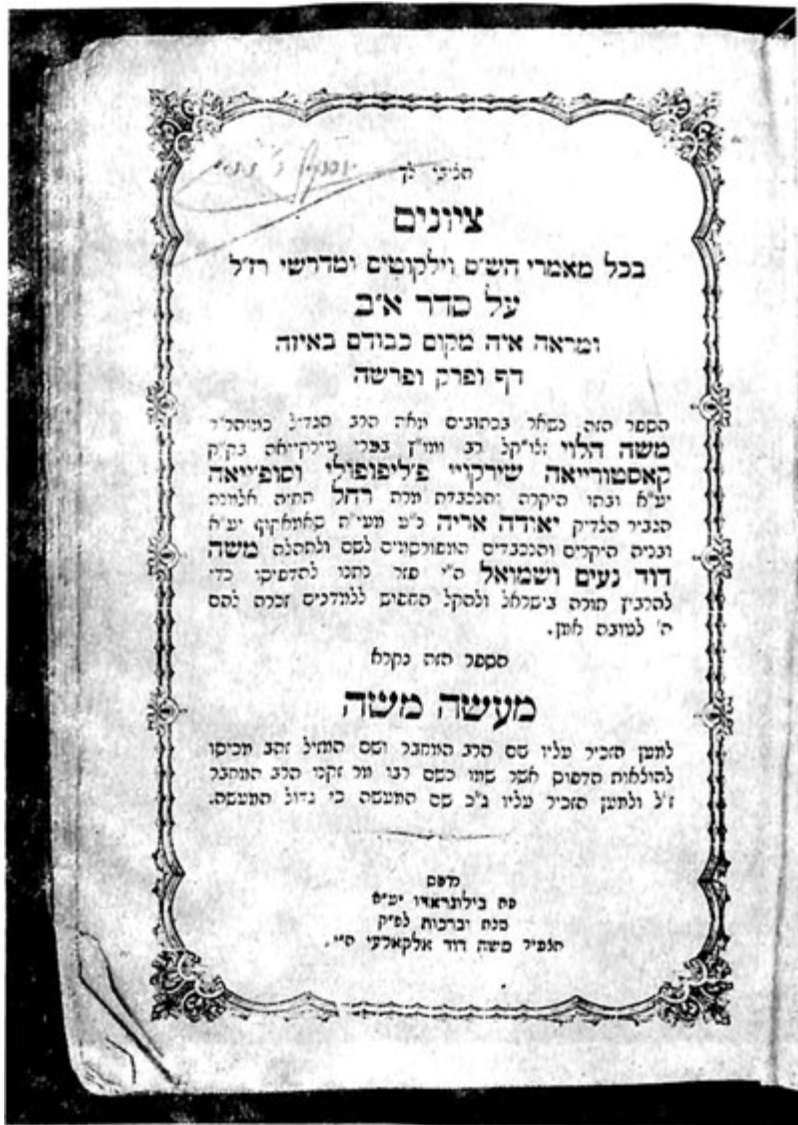 הציבי לך
ציונים
בכל מאמרי הש״ס וילקוטים ומדרשי רז״ל
על סדר א״ב
ומראה איה מקום כבודם באיזה
דף ופרק ופרשה
הספר הזה נשאר בכתובים מאת הרב הגדול כמוהר״ר
משה הלוי זלי״קל רב ומו״ץ בערי בק״ק
קאסטורייאה שירקויי פ׳ליפופולי וסופ׳ייאה
יע״א ובתו היקרה והנכבדת מרת רחל תחיה אלמנת
הגביר הצדיק יאודה אריה נ״ע מעי״ת סאמאקוף יע״א
ובניה היקרים והנכבדים המפורסמים לשם ולתהלת משה
דוד נעים ושמואל הי״ו פזר נתנו להדפיסו כדי
להרבין תורה בישראל ולהקל החפוש ללומדים זכרה להם
ה׳ לטובה אמן.
הספר הזה נקרא
מעשה משה
למען הזכיר עליו שם הרב המחבר ושם המזיל זהב מכיסו
להוצאות הדפוס אשר שמו כשם רבו מר זקנו הרב המחבר
ז״ל ולמען הזכיר עליו ג״כ שם המעשה כי גדול המעשה.
נדפס
פה בילוגראדו יע״א
שנת וברכות לפ״ק
משה דוד אלקאלעי הי״ו.